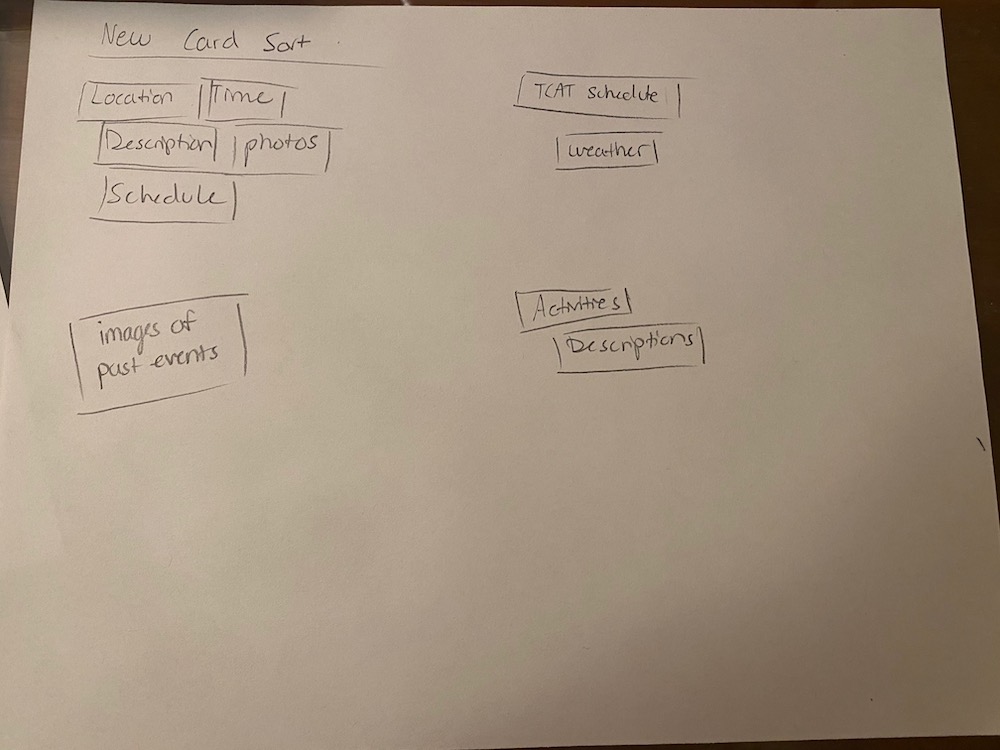 New Card Sort
Location Time
Description photos
Schedule
TCAT Schedule
weather
images of
past events
Activities
Descriptions